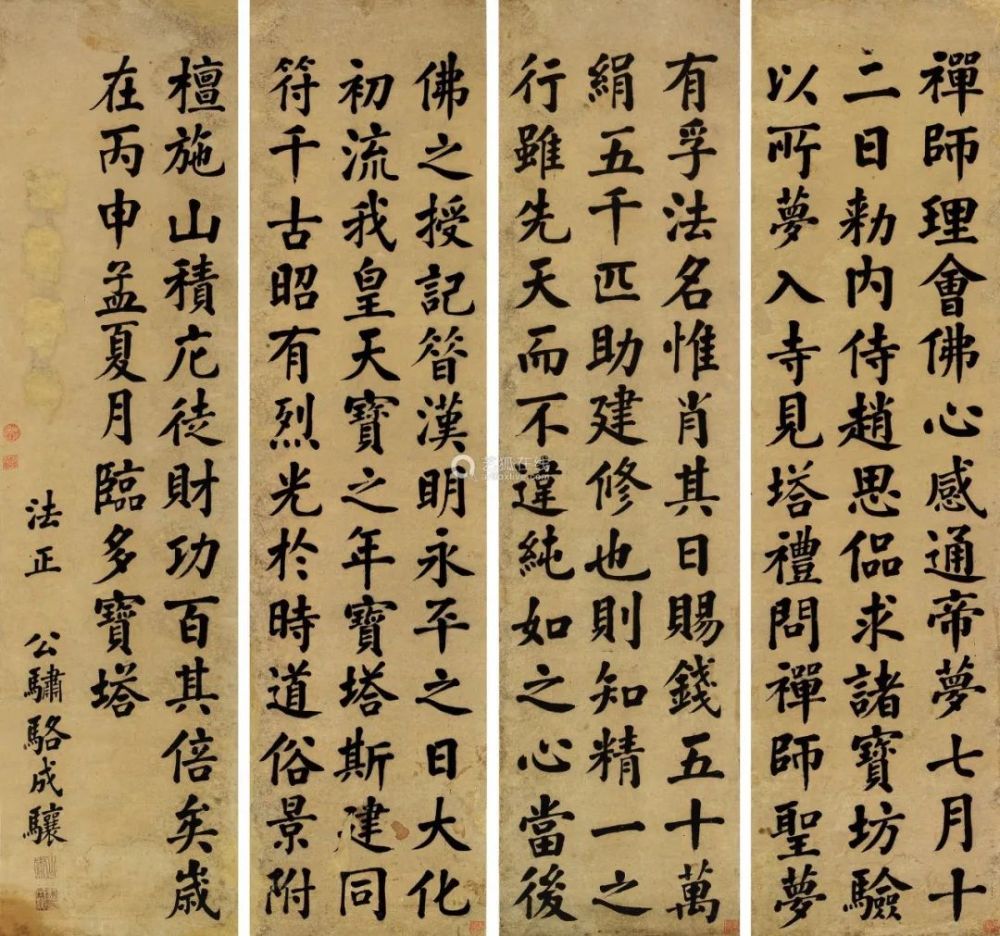 禪師理會佛心感通帝夢七月十
二日勑内侍趙思侃求諸寶坊驗
以所夢入寺見塔禮問禪師聖夢
有孚法名惟肖其日賜錢五十萬
絹五千匹助建修也則知精一之
行雖先天而不違純如之心當後
佛之授記昝漢明永平之日大化
初流我皇天寶之年寶塔斯建同
符千古昭有烈光於時道俗景附
檀施山積庀徒財功百其倍矣歲
在丙申孟夏月臨多寶塔
法正 公驌駱成驤